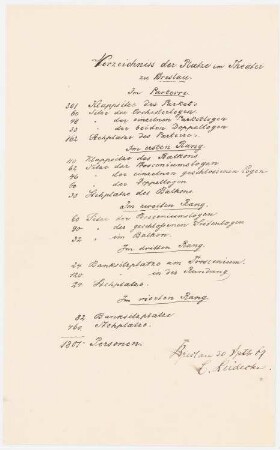 Verzeichniss der Plätze im Theater
zu Breslau.
Im Parterre
301 Klappsitze des Parkets
60 Sitze der Orchesterlogen
48 " der einzelnen Parketlogen
33 " der beiden Doppellogen
162 Stehplätze des Parterres.
Im ersten Rang
110 Klappsitze des Balkons
62 Sitze der Prosceniumslogen
96 " der einzelnen geschlossenen Logen
" der Doppellogen
30 Stehplätze des Balkons.
Im zweiten Rang.
60 Sitze der Prosceniumslogen
90 " der geschlossenen Seitenlogen
32 " im Balkon.
Im dritten Rang.
24 Banksitzplätze am Proscenium.
120 " in der Rundung
24 Stehplätze.
Im vierten Rang
82 Banksitzplätze
460 Stehplätze.
1807 Personen.
Breslau 20 69